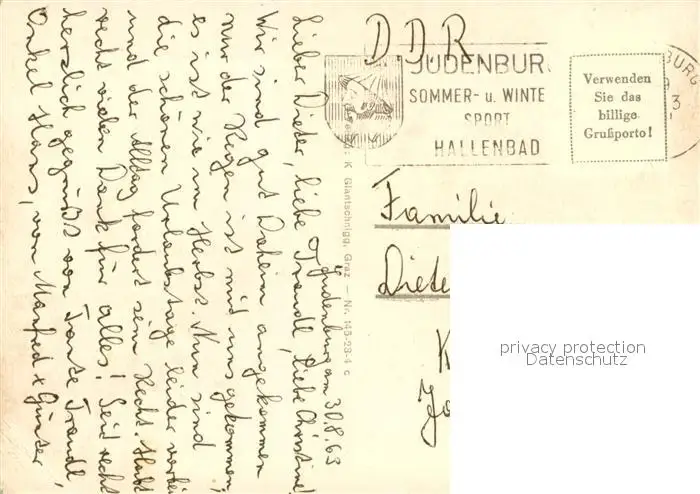 Judenburg am 30.8.63
Lieber Dieter, liebe Traudl, liebe Christine!
Wir sind gut daheim angekommen
nur der Regen ist mit uns gekommen,
es ist wie im Herbst. Nun sind
die schönen Urlaubstage leider vorbei
und der Alltag fordert sein Recht. Habt
recht vielen Dank für alles! Seid recht
herzlich gegrüßt von Tante Traudl,
Onkel Hans, von Manfred + Günter
K. Glantschnigg, Graz – Nr. 145-23-1 c
DDR
JUDENBURG
SOMMER- u. WINTE
SPORT
HALLENBAD
Verwenden
Sie das
billige
Grußporto!
BURG
3
Familie
Diete
K
Jo
privacy protection
Datenschutz